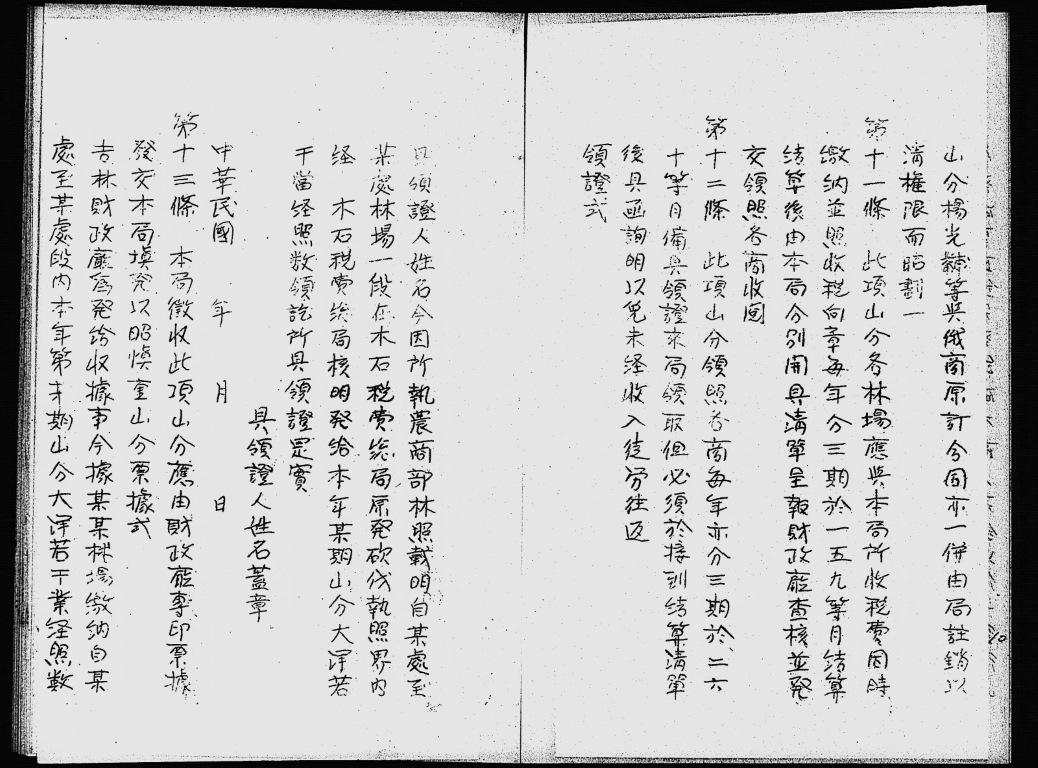 山分楊光黼等與俄商原訂合同亦一併由局註銷以
清權限而昭劃一
第十一條　此項山分各林場應與本局所收稅費同時
繳納並照收稅向章每年分三期於一五九等月結算
結算後由本局分別開具清單呈報財政廳查核並発
交領照各商收囬
第十二條　此項山分領照各商每年亦分三期於二六
十等月備具領證來局領取但必須於接到结算清單
後具函詢明以免未経收入徒勞往返
領證式
具領證人姓名今因所執農商部林照載明自某處至
某處林場一段在木石稅費総局原発砍伐執照界內
経　木石稅費総局核明発给本年某期山分大洋若
干當経照数領訖所具領證是實
具領證人姓名蓋章
中華民國　年　月　日
第十三條　本局徵收此項山分應由財政廳專印票據
發交本局填発以昭慎重山分票據式
吉林財政廳為発给收據事今據某某林場繳納自某
處至某處段内本年第才期山分大洋若干業経照数